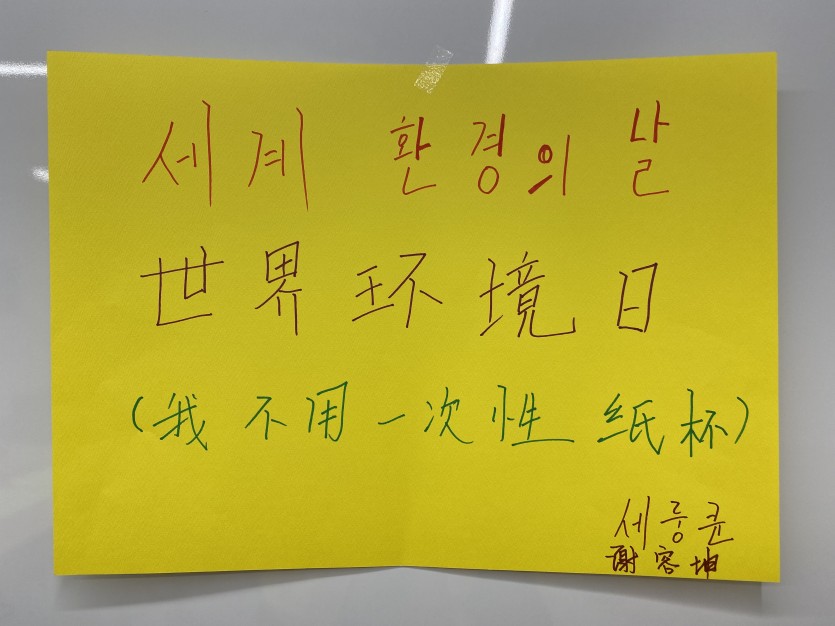 세계 환경의 날
世界环境日
(我不用一次性纸杯)
세룽큰
谢容坤